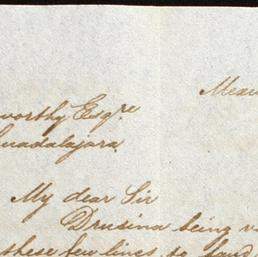 Mexi
worthy Esqre
Guadalajara
My dear Sir
Drusina being
these few lines to